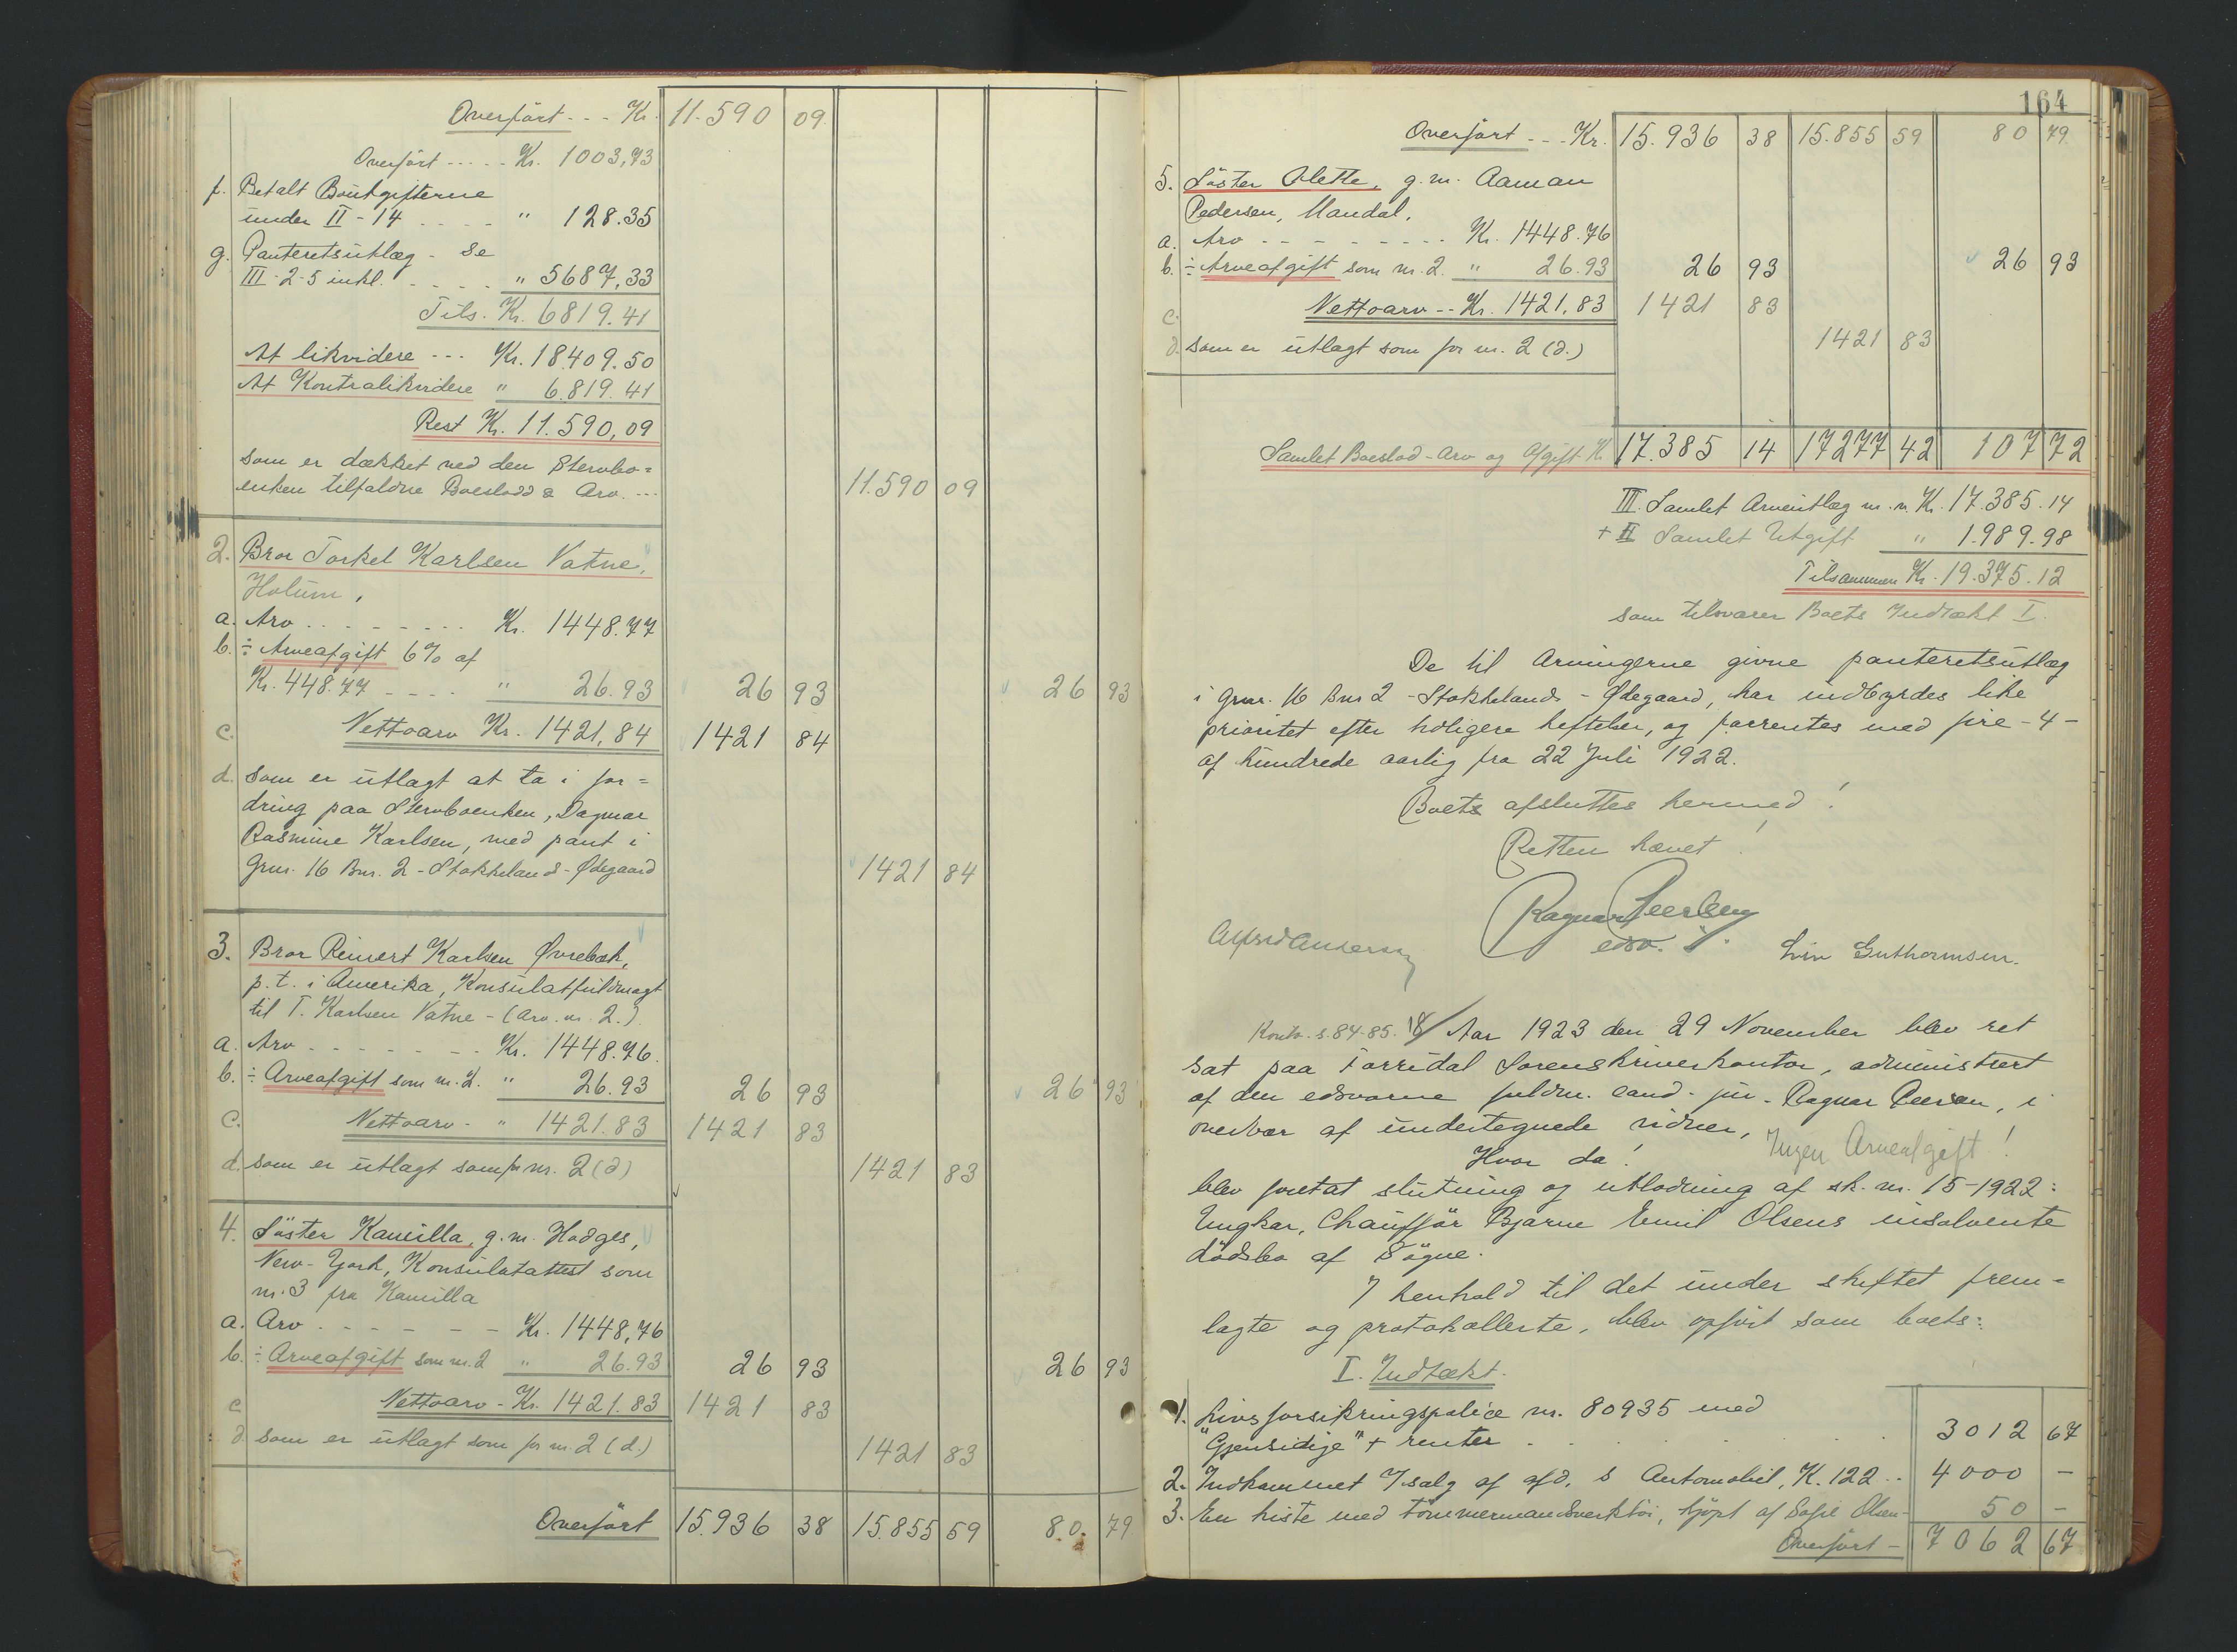 Overført - - - Kr. 11.590 09
Overført - - - - - Kr. 1003,73
f. Betalt Boutgifterne
under II - 14 - - - - " 128.35
g. Panteretsutlæg - se
III - 2-5 inkl. - - - - " 5687,33
Tils. Kr. 6819.41
At likvidere - - - Kr. 18409.50
At Kontralikvidere " 6.819.41
Rest Kr. 11.590,09
som er dækket ved den Stervbo=
enken tilfaldne Boeslodd & Arv. --- 11.590 09
2. Bror Torkel Karlsen Vatne,
Holum,
a. Arv - - - - - - - - Kr. 1448.77
b. ÷ Arveafgift 6% af
Kr. 448.77 - - - - " 26.93 26 93 26 93
c. Nettoarv Kr. 1421,84 1421 84
d. som er utlagt at ta i for=
dring paa Stervboenken, Dagmar
Rasmine Karlsen, med pant i
Grnr. 16 Bnr. 2 - Stokkeland - Ødegaard 1421 84
3. Bror Reinert Karlsen Øvrebøk,
p.t. i Amerika, Konsulatfuldmagt
til T. Karlsen Vatne - (arv. nr. 2.)
a. Arv - - - - - - - Kr. 1448.76.
b. ÷ Arveafgift som nr. 2. " 26.93 26 93 26 93
c. Nettoarv - " 1421.83 1421 83
d. som er utlagt som for nr. 2 (d) 1421 83
4. Søster Kamilla, g.m. Hodges,
New-York, Konsulatattest som
nr. 3 fra Kamilla
a. Arv - - - - - - Kr. 1448,76
b. ÷ Arveafgift som nr. 2 " 26.93 26 93 26 93
c Nettoarv - Kr. 1421.83 1421 83
d. som er utlagt som for nr. 2 (d.) 1421 83
Overført 15.936 38 15.855 59 80. 79
164
Overført - - - Kr. 15.936 38 15.855 59 80 79
5. Søster Olette, g.m. Aaman
Pedersen, Mandal.
a. Arv - - - - - - - - - Kr. 1448.76
b. ÷ Arveafgift som nr. 2. " 26.93 26 93 26 93
c. Nettoarv - - Kr. 1421.83 1421 83
d. som er utlagt som for nr. 2 (d.) 1421 83
Samlet Boeslod - Arv og Afgift Kr. 17.385 14 17277 42 107 72
III. Samlet Arveutlæg m.m. Kr. 17.385.14
+ II Samlet Utgift " 1.989.98
Tilsammen Kr. 19.375.12
som tilsvarer Boets Indtækt I.
De til Arvingerne givne panteretsutlæg
i Grnr. 16 Bnr 2 - Stokkeland - Ødegaard, har indbyrdes like
prioritet efter tidligere heftelser, og forrentes med fire - 4 -
af hundrede aarlig fra 22 Juli 1922.
Boets afsluttes hermed!
Retten hævet!
Ragnar Peersen
edsv. f.
Alfred Andersen
Liv Guthormsen.
Kontr. s. 84-85. 18/ Aar 1923 den 29 November blev ret
sat paa Torridal Sorenskriverkontor, administrert
af den edsvorne fuldm. cand. jur. Ragnar Peersen, i
overvær af undertegnede vidner,
Hvor da!
Ingen Arveafgift!
blev foretat slutning og utlodning af sk. nr. 15-1922:
Ungkar, Chauffør Bjarne Emil Olsens insolvente
dødsbo af Søgne.
I henhold til det under skiftet frem=
lagte og protokollerte, blev opført som boets:
I. Indtækt.
1. Livsforsikringspolice nr. 80935 med
"Gjensidige" + renter . . . . . . . 3012 67
2. Indkommet v/ salg af afd. s Automobil, K. 122 - - 4000 -
3. En kiste med tømmermandsverktøi, kjøpt af Sofie Olsen - 50 -
Overført - 7062 67